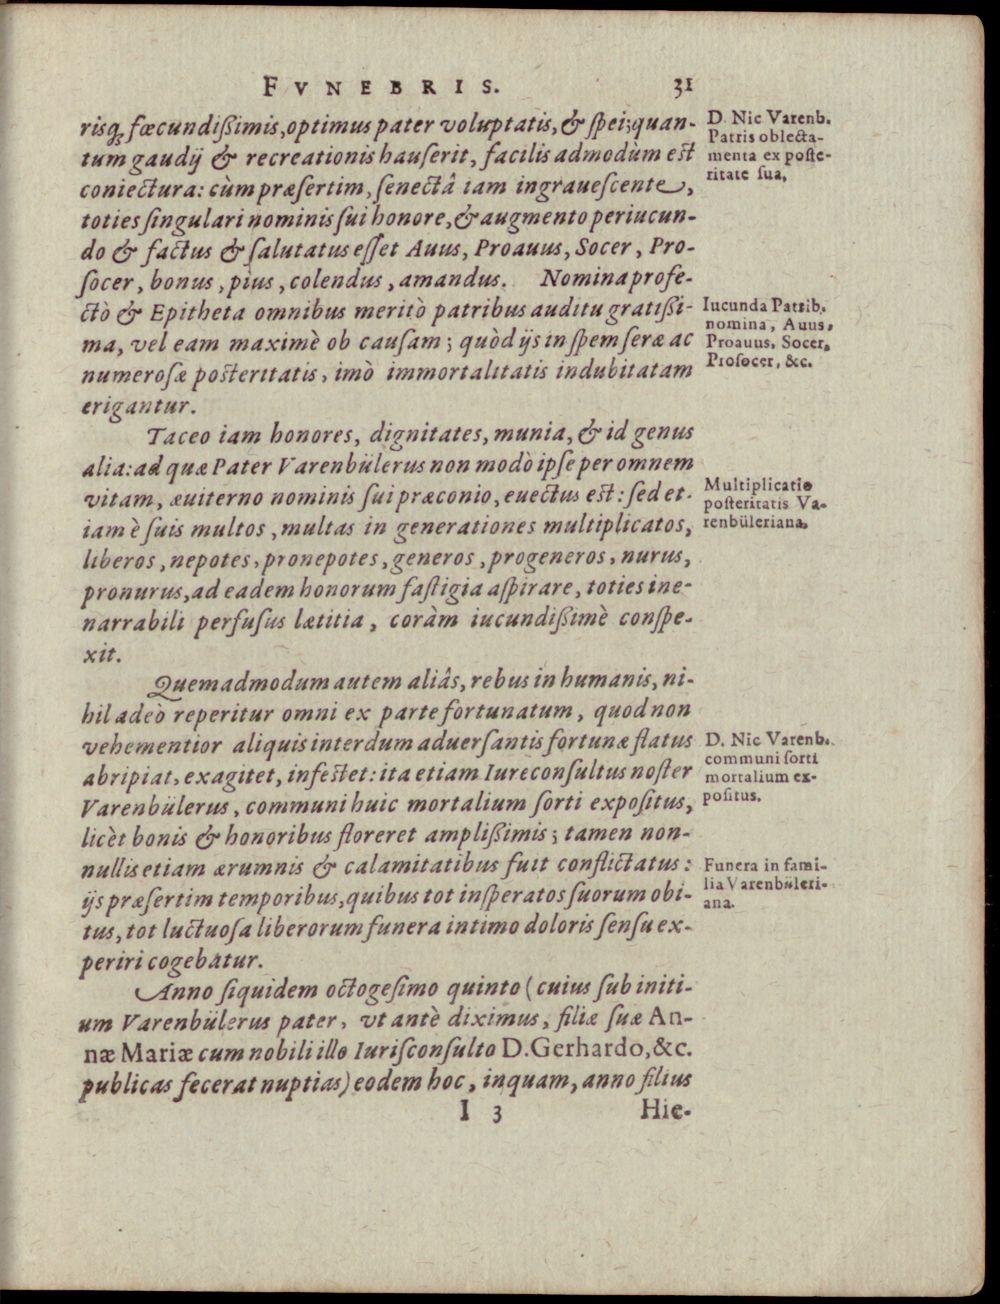 FVNEBRIS. 31
risq; fœcundißimis, optimus pater voluptatis, & ſpei; quan-
tum gaudij & recreationis hauſerit, facilis admodùm est
coniectura: cùm præſertim, ſenectâ iam ingraueſcente,
toties ſingulari nominis ſui honore, & augmento periucun-
do & factus & ſalutatus eſſet Auus, Proauus, Socer, Pro-
ſocer, bonus, pius, colendus, amandus. Nomina profe-
ctò & Epitheta omnibus meritò patribus auditu gratißi-
ma, vel eam maximè ob cauſam; quòd ijs in ſpem ſeræ ac
numeroſæ posteritatis, imò immortalitatis indubitatam
erigantur.
Taceo iam honores, dignitates, munia, & id genus
alia: ad quæ Pater Varenbülerus non modò ipſe per omnem
vitam, æuiterno nominis ſui præconio, euectus est: ſed et-
iam è ſuis multos, multas in generationes multiplicatos,
liberos, nepotes, pronepotes, generos, progeneros, nurus,
pronurus, ad eadem honorum faſtigia aſpirare, toties ine-
narrabili perfuſus lætitia, coràm iucundißimè conſpe-
xit.
Quemadmodum autem aliâs, rebus in humanis, ni-
hil adeò reperitur omni ex parte fortunatum, quod non
vehementior aliquis interdum aduerſantis fortunæ flatus
abripiat, exagitet, infestet: ita etiam Iureconſultus noſter
Varenbülerus, communi huic mortalium ſorti expoſitus,
licèt bonis & honoribus floreret amplißimis; tamen non-
nullis etiam ærumnis & calamitatibus fuit conflictatus:
ijs præſertim temporibus, quibus tot inſperatos ſuorum obi-
tus, tot luctuoſa liberorum funera intimo doloris ſenſu ex-
periri cogebatur.
Anno ſiquidem octogeſimo quinto (cuius ſub initi-
um Varenbülerus pater, vt antè diximus, filiæ ſuæ An-
næ Mariæ cum nobili illo Iuriſconſulto D. Gerhardo, &c.
publicas fecerat nuptias) eodem hoc, inquam, anno filius
I 3 Hie-
D. Nic Varenb.
Patris oblecta-
menta ex poſte-
ritate ſua.
Iucunda Patrib.
nomina, Auus,
Proauus, Socer,
Proſocer, &c.
Multiplicatio
poſteritatis Va-
renbüleriana.
D. Nic Varenb.
communi ſorti
mortalium ex-
poſitus.
Funera in fami-
lia Varenbüleri-
ana.